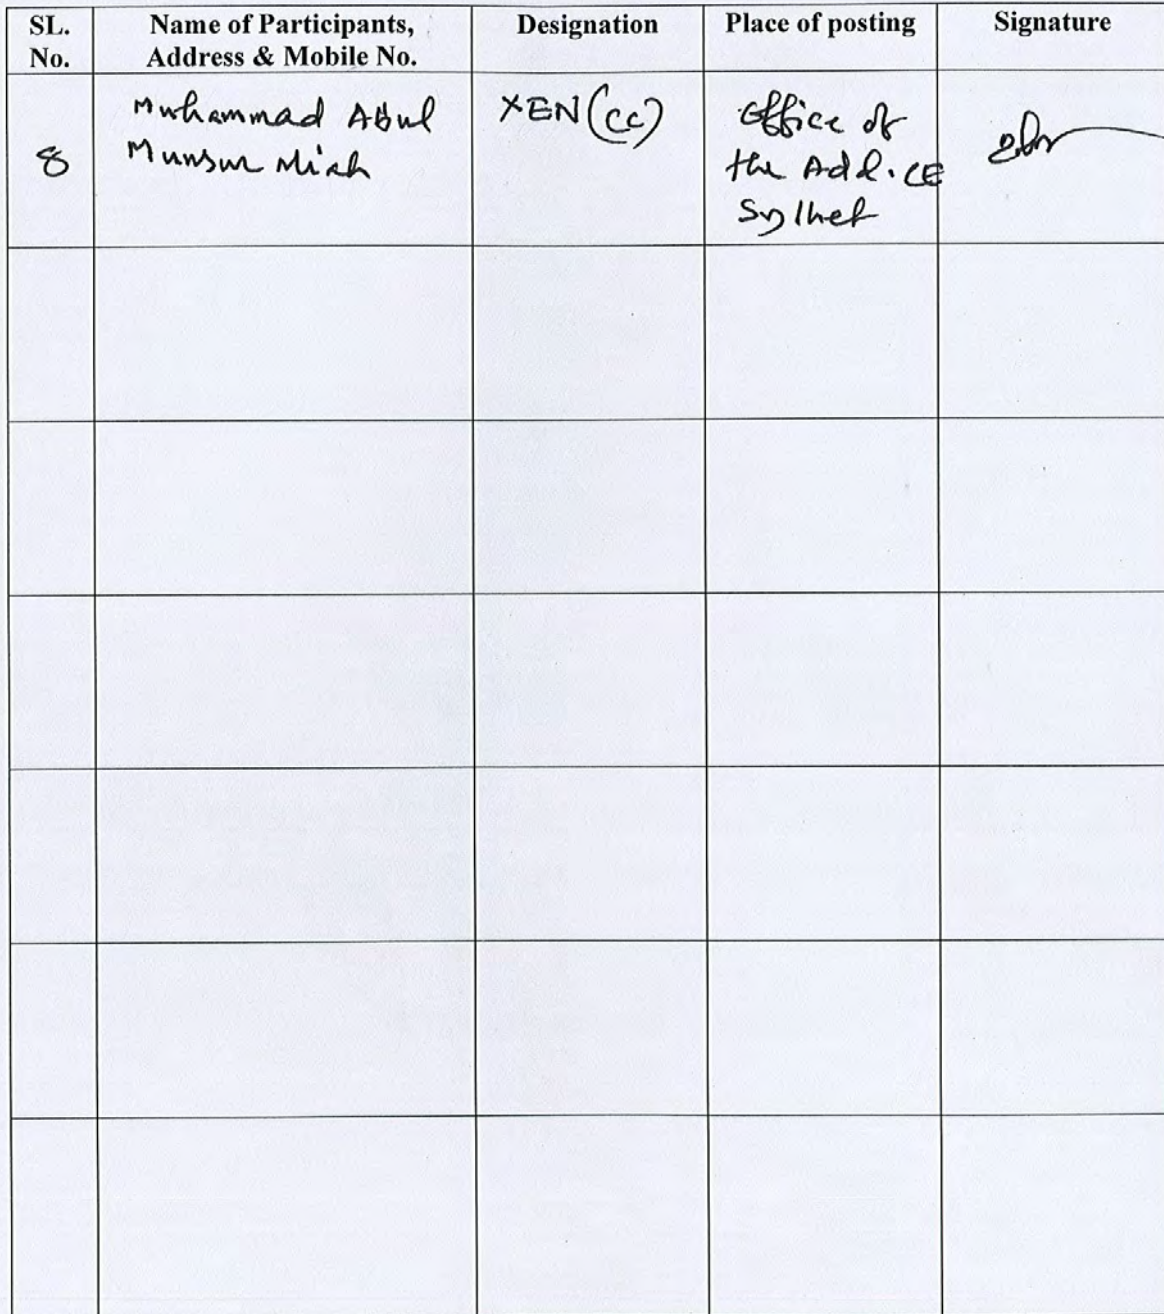 SL. No.
Name of Participants, Address & Mobile No.
Designation
Place of posting
Signature
8
Muhammad Abul
Munsur Miah
XEN (CC)
Office of
the Addl. CE
Sylhet